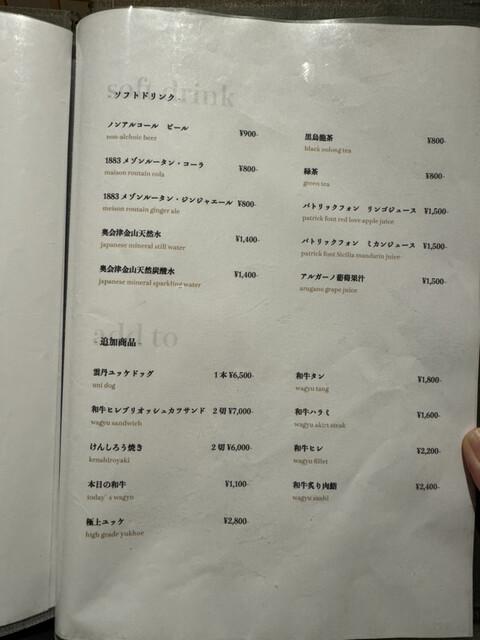 soft drink
ソフトドリンク
ノンアルコール ビール ¥900-
non-alchoic beer
1883 メゾンルータン・コーラ ¥800-
maison routain cola
1883 メゾンルータン・ジンジャエール ¥800-
meison routain ginger ale
奥会津金山天然水 ¥1,400-
japanese mineral still water
奥会津金山天然炭酸水 ¥1,400-
japanese mineral sparkling water
黒烏龍茶 ¥800-
black oolong tea
緑茶 ¥800-
green tea
パトリックフォン リンゴジュース ¥1,500-
patrick font red love apple juice
パトリックフォン ミカンジュース ¥1,500-
patrick font Sicilia mandarin juice
アルガーノ葡萄果汁 ¥1,500-
arugano grape juice
add to
追加商品
雲丹ユッケドッグ 1本 ¥6,500-
uni dog
和牛ヒレブリオッシュカツサンド 2切 ¥7,000-
wagyu sandwich
けんしろう焼き 2切 ¥6,000-
kenshiroyaki
本日の和牛 ¥1,100-
today's wagyu
極上ユッケ ¥2,800-
high grade yukhoe
和牛タン ¥1,800-
wagyu tang
和牛ハラミ ¥1,600-
wagyu skirt steak
和牛ヒレ ¥2,200-
wagyu fillet
和牛炙り肉鮨 ¥2,400-
wagyu sushi